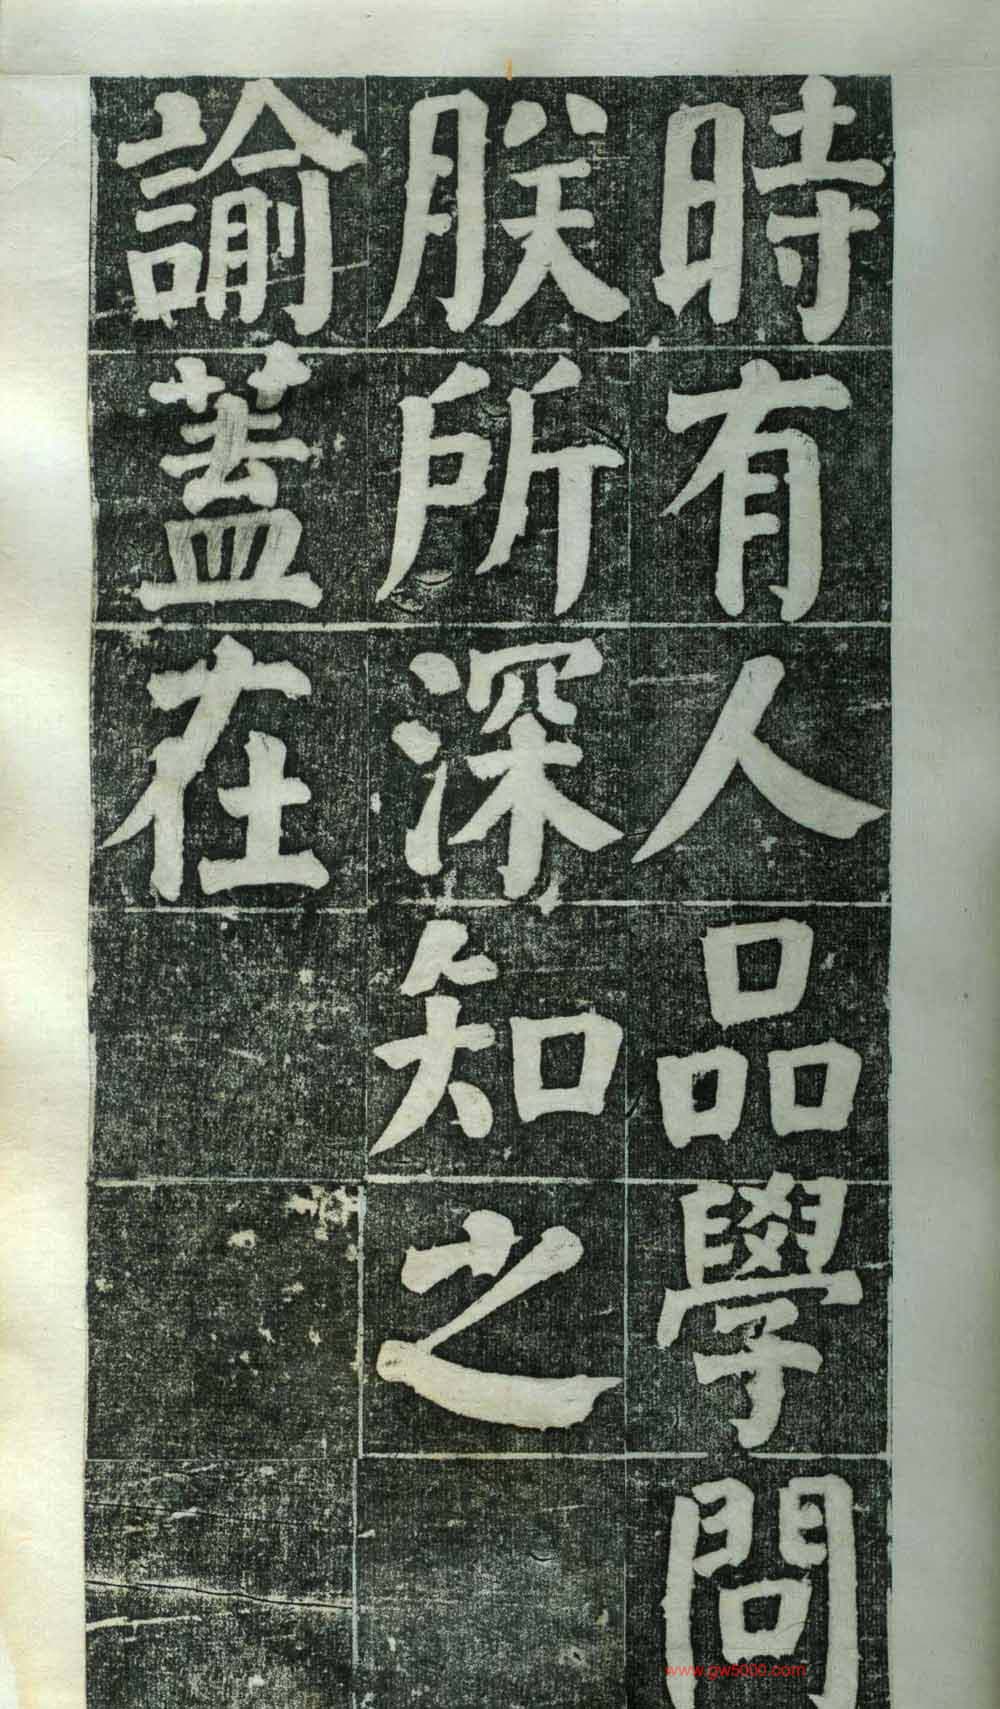 時有人品學問
朕所深知之
諭蓋在
www.gw5000.com